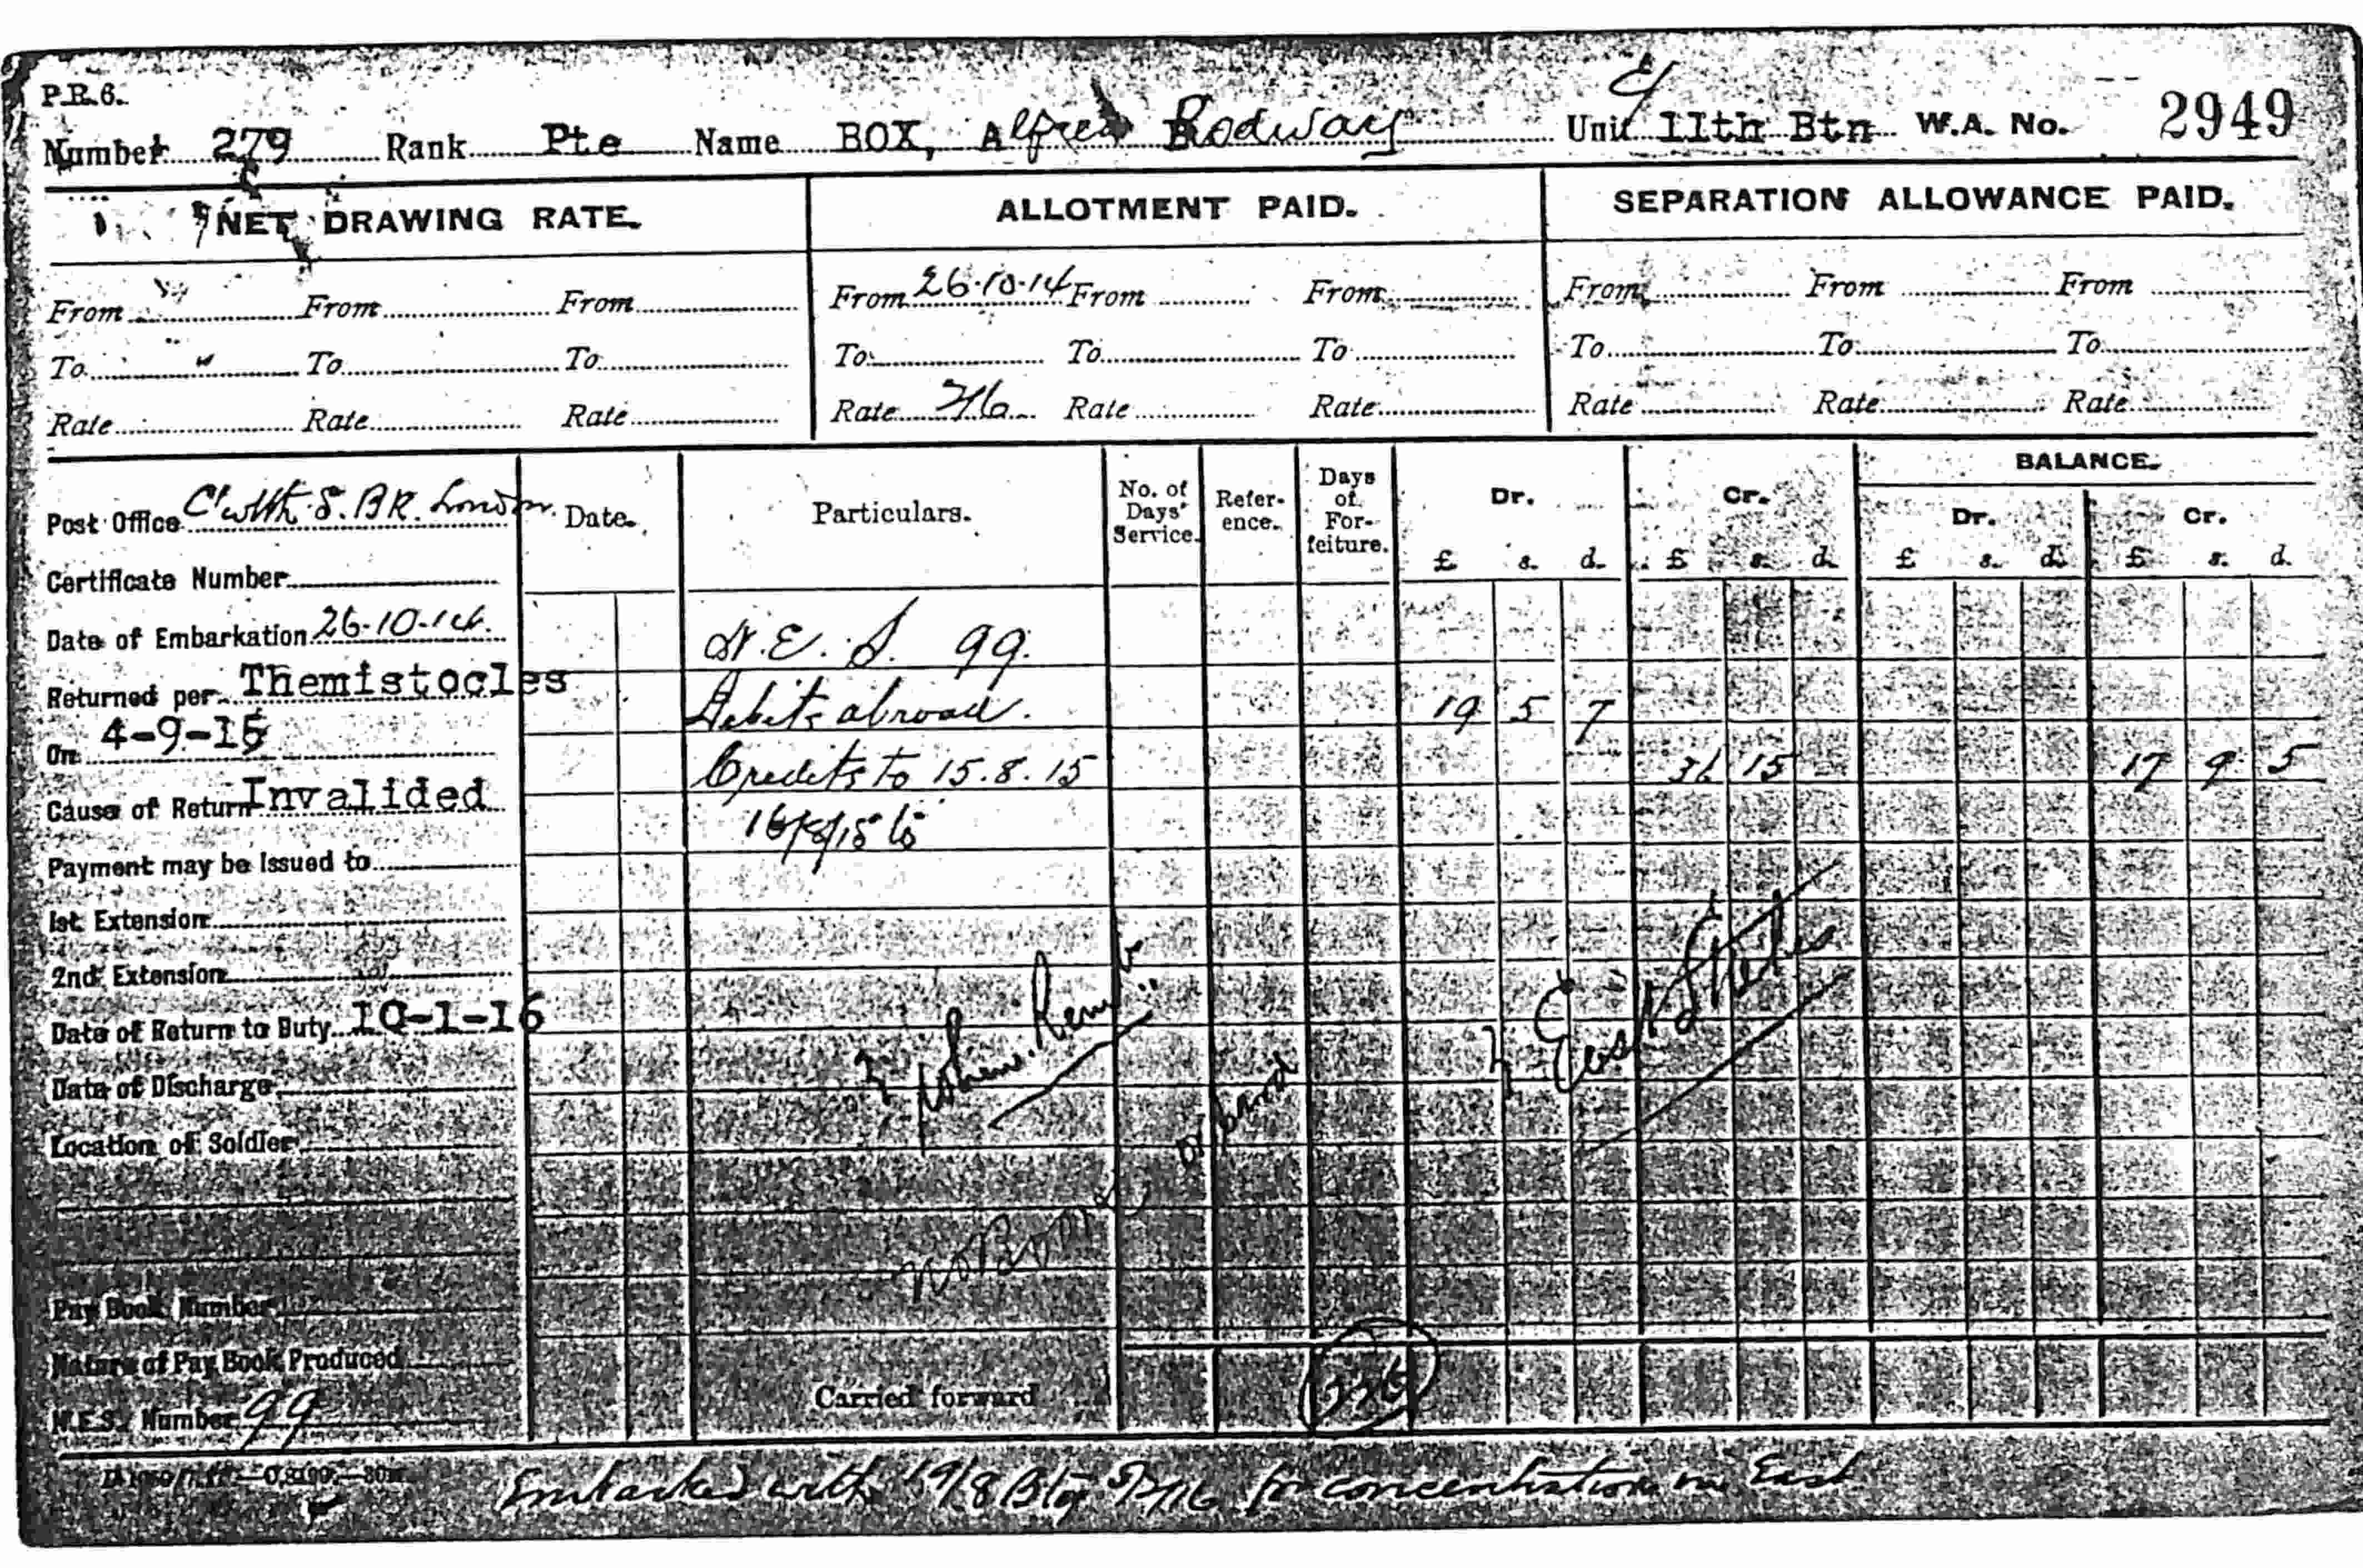 P.R.6.
Number 279 Rank Pte Name BOX, Alfred Rodway Unit 11th Btn W.A. No. 2949
NET DRAWING RATE. ALLOTMENT PAID. SEPARATION ALLOWANCE PAID.
From From From From 26-10-14 From From From From From
To To To To To To To To To
Rate Rate Rate Rate Rate Rate Rate Rate Rate
BALANCE.
Post Office C'wlth S. BK. London. Date. Particulars. No. of Days' Service. Reference. Days of Forfeiture. Dr. Cr. Dr. Cr.
£ s. d. £ s. d. £ s. d. £ s. d.
Certificate Number
Date of Embarkation 26-10-14. E. S. 99.
Returned per Themistocles Debits abroad. 19 5 7
On 4-9-15 Credits to 15.8.15 15 17 9 5
Cause of Return Invalided 16/8/15 to
Payment may be Issued to
1st Extension
2nd Extension
Date of Return to Duty 10-1-16
Date of Discharge
Location of Soldier
No
Pay Book Number
Nature of Pay Book Produced
Carried forward
N.E.S. Number 99
Embarked with 19/8 Btn for concentration in East